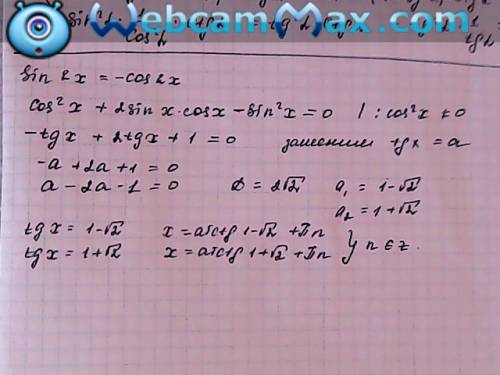 WebcamMax.com
sin 2x = -cos2x
cos²x + 2sinx·cosx - sin²x = 0 / : cos²x ≠ 0
-tgx + 2tgx + 1 = 0 заменим tgx = a
-a + 2a + 1 = 0
a - 2a - 1 = 0 D = 2√2 a₁ = 1-√2
a₂ = 1+√2
tgx = 1-√2 x = arctg 1-√2 + πn
tgx = 1+√2 x = arctg 1+√2 + πn } n ∈ z.